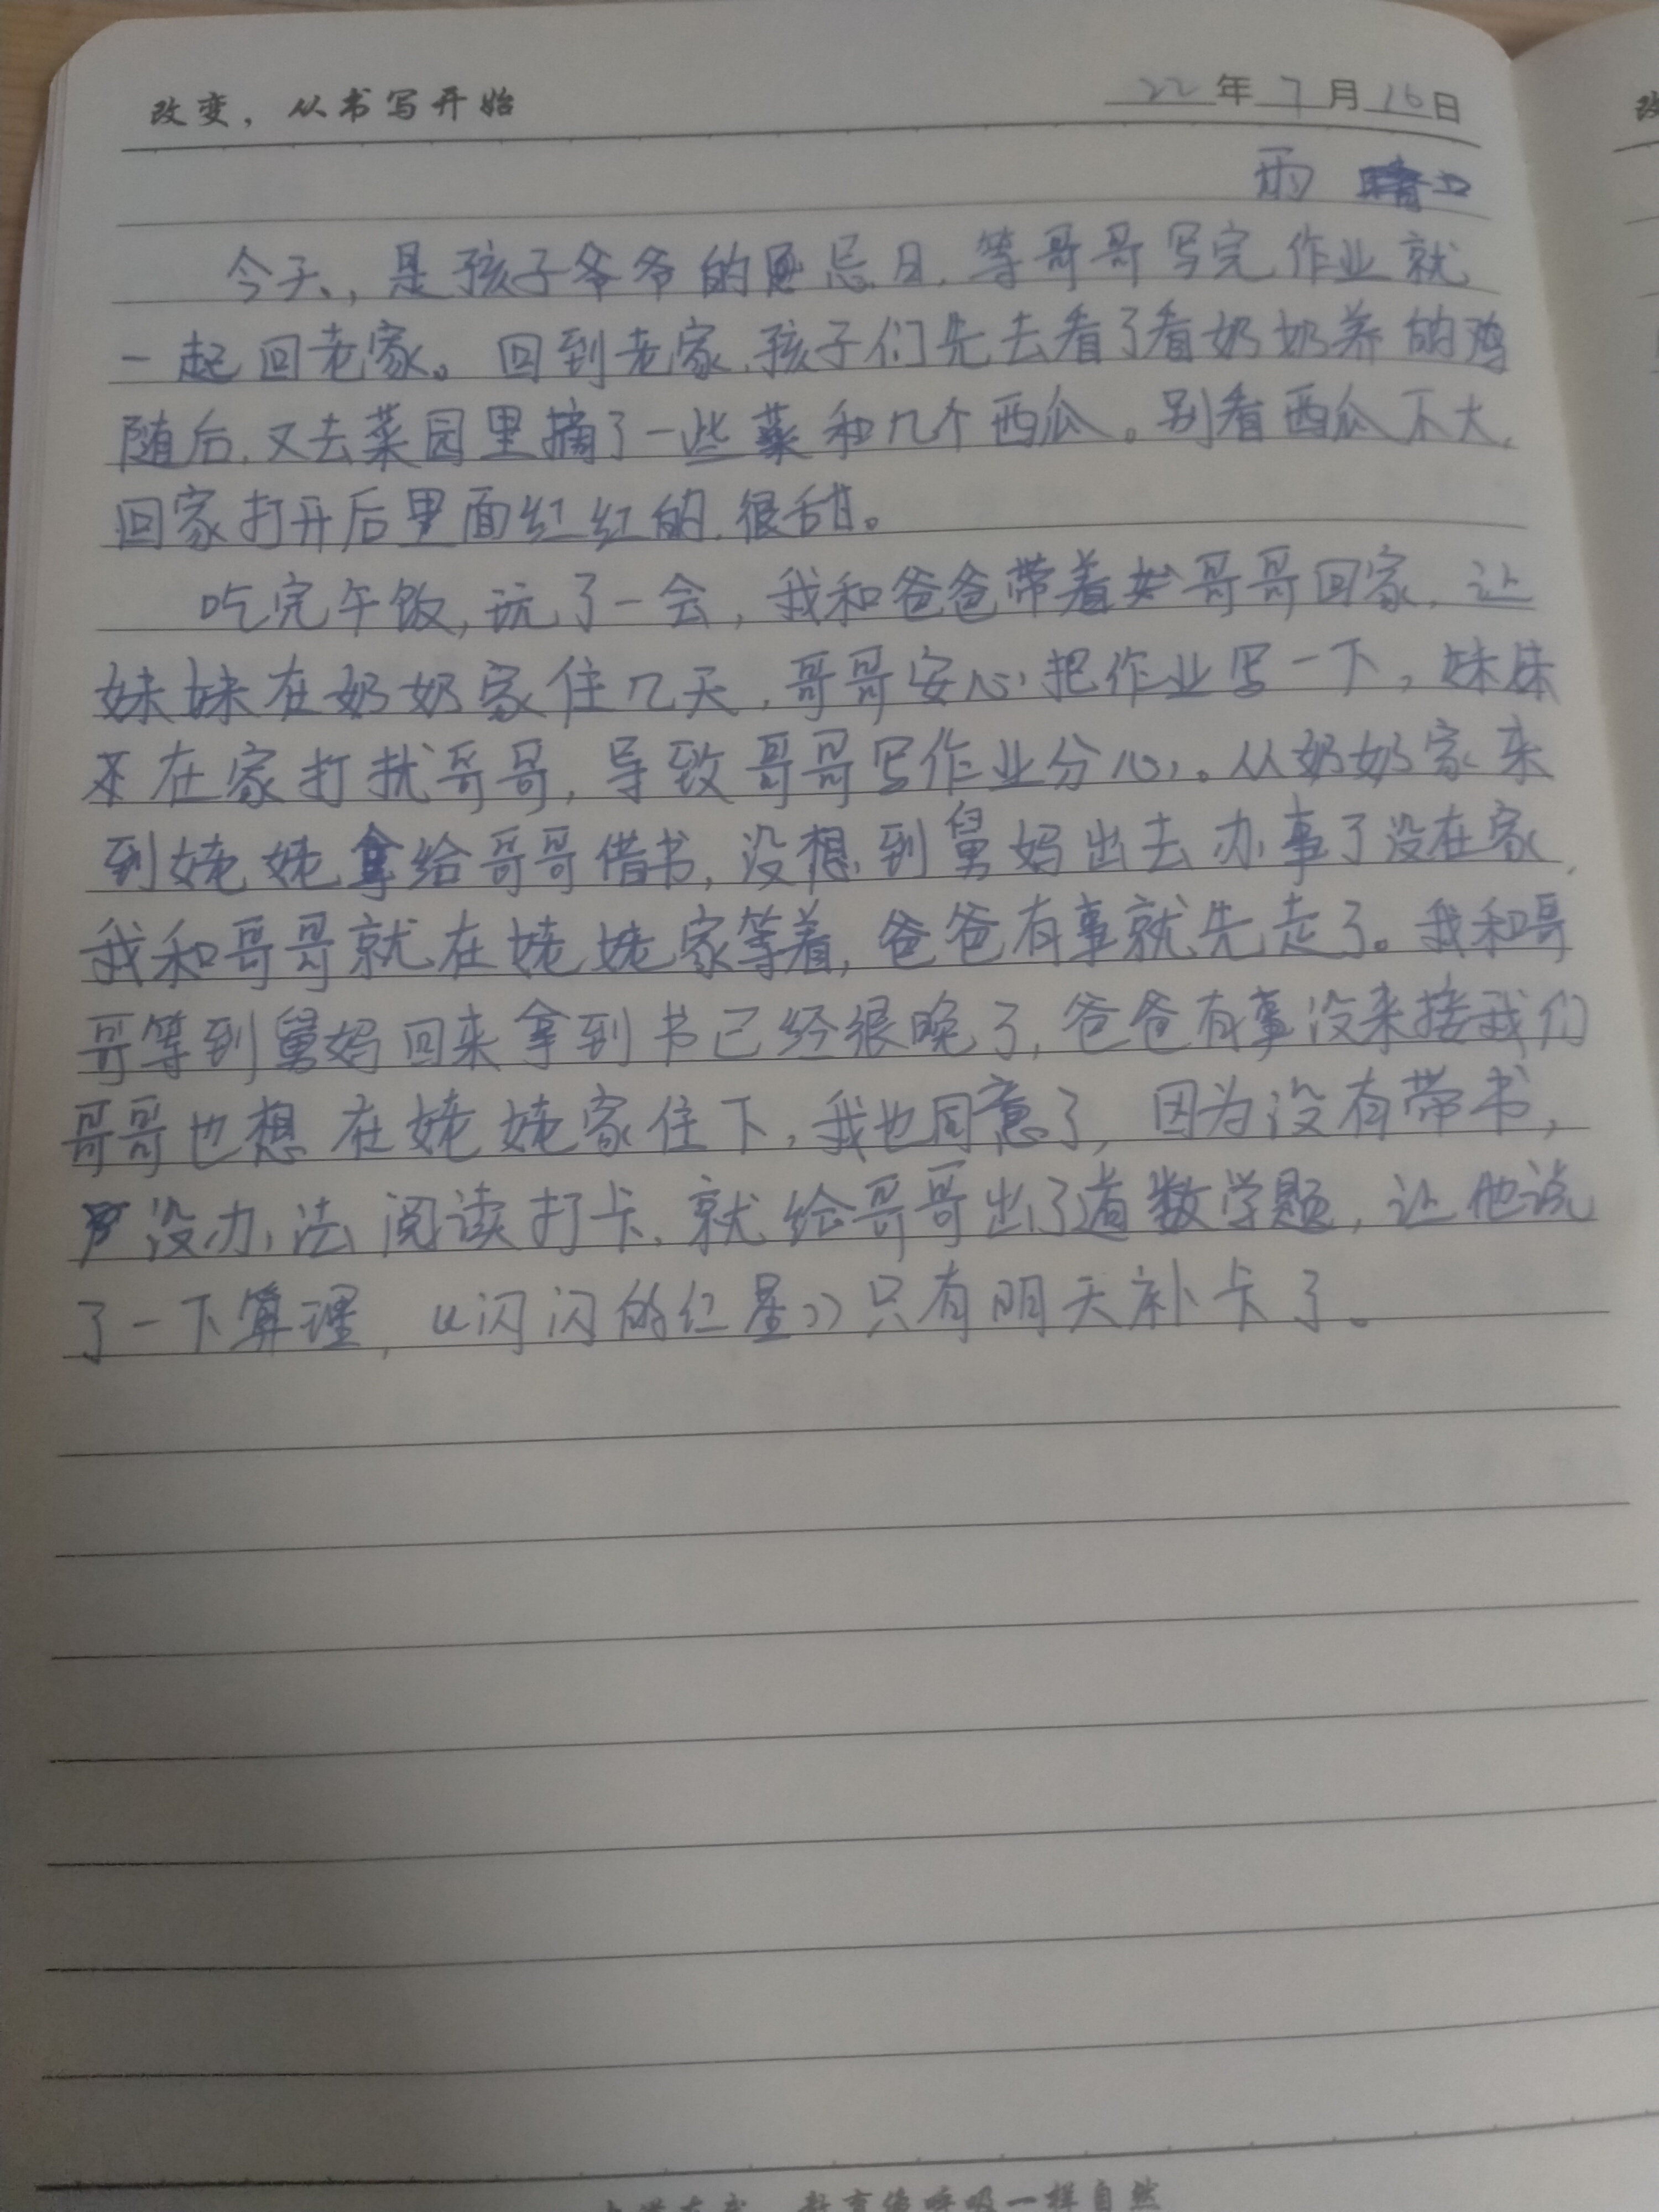 改变，从书写开始
22年7月16日
雨
今天，是孩子爷爷的忌日，等哥哥写完作业就
一起回老家。回到老家，孩子们先去看了看奶奶养的鸡
随后，又去菜园里摘了一些菜和几个西瓜。别看西瓜不大，
回家打开后里面红红的，很甜。
吃完午饭，玩了一会，我和爸爸带着哥哥回家，让
妹妹在奶奶家住几天，哥哥安心把作业写一下，妹妹
不在家打扰哥哥，导致哥哥写作业分心。从奶奶家来
到姥姥拿给哥哥借书，没想到舅妈出去办事了没在家，
我和哥哥就在姥姥家等着，爸爸有事就先走了。我和哥
哥等到舅妈回来拿到书已经很晚了，爸爸有事没来接我们
哥哥也想在姥姥家住下，我也同意了，因为没有带书，
没办法阅读打卡，就给哥哥出了道数学题，让他说
了一下算理，《闪闪的红星》只有明天补卡了。
教育像呼吸一样自然